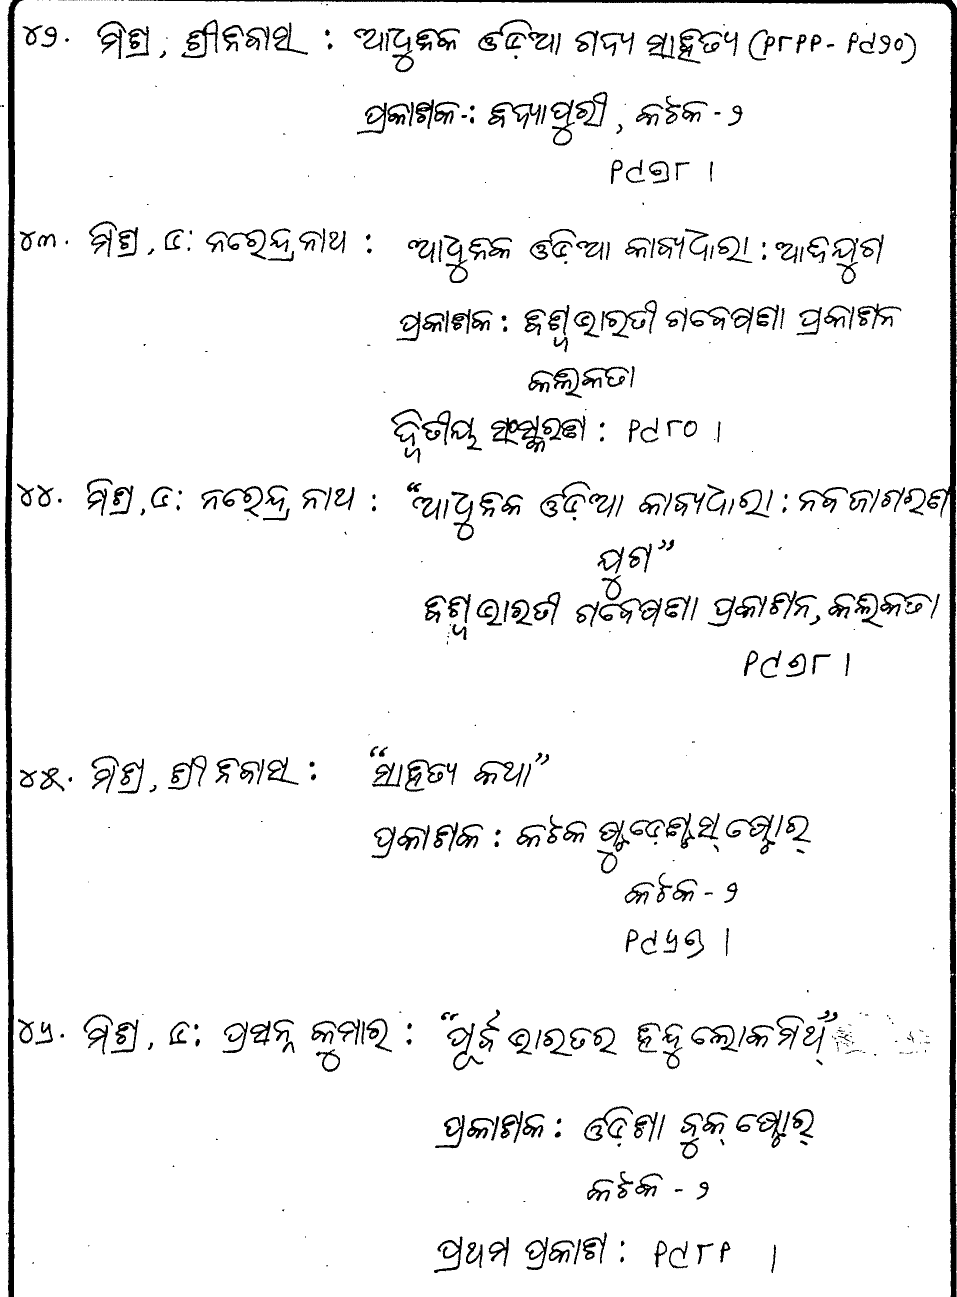 ୪୨. ମିଶ୍ର, ଶ୍ରୀନିବାସ : ଆଧୁନିକ ଓଡ଼ିଆ ଗଦ୍ୟ ସାହିତ୍ୟ (୧୮୧୧- ୧୯୨୦)
ପ୍ରକାଶକ-: ବିଦ୍ୟାପୁରୀ, କଟକ - ୨
୧୯୭୮ ।
୪୩. ମିଶ୍ର, ଡଃ ନରେନ୍ଦ୍ରନାଥ : ଆଧୁନିକ ଓଡ଼ିଆ କାବ୍ୟଧାରା : ଆଦିଯୁଗ
ପ୍ରକାଶକ : ବିଶ୍ୱଭାରତୀ ଗବେଷଣା ପ୍ରକାଶନ
କଲିକତା
ଦ୍ୱିତୀୟ ସଂସ୍କରଣ : ୧୯୮୦ ।
୪୪. ମିଶ୍ର, ଡଃ ନରେନ୍ଦ୍ର ନାଥ : “ଆଧୁନିକ ଓଡ଼ିଆ କାବ୍ୟଧାରା : ନବଜାଗରଣ
ଯୁଗ”
ବିଶ୍ୱଭାରତୀ ଗବେଷଣା ପ୍ରକାଶନ, କଲିକତା
୧୯୭୮ ।
୪୫. ମିଶ୍ର, ଶ୍ରୀନିବାସ : “ସାହିତ୍ୟ କଥା”
ପ୍ରକାଶକ : କଟକ ଷ୍ଟୁଡେଣ୍ଟସ୍ ଷ୍ଟୋର୍
କଟକ - ୨
୧୯୬୭ ।
୪୬. ମିଶ୍ର, ଡଃ ପ୍ରସନ୍ନ କୁମାର : “ପୂର୍ବ ଭାରତର ହିନ୍ଦୁ ଲୋକମିଥ୍”
ପ୍ରକାଶକ : ଓଡ଼ିଶା ବୁକ୍ ଷ୍ଟୋର୍
କଟକ - ୨
ପ୍ରଥମ ପ୍ରକାଶ : ୧୯୮୧ ।